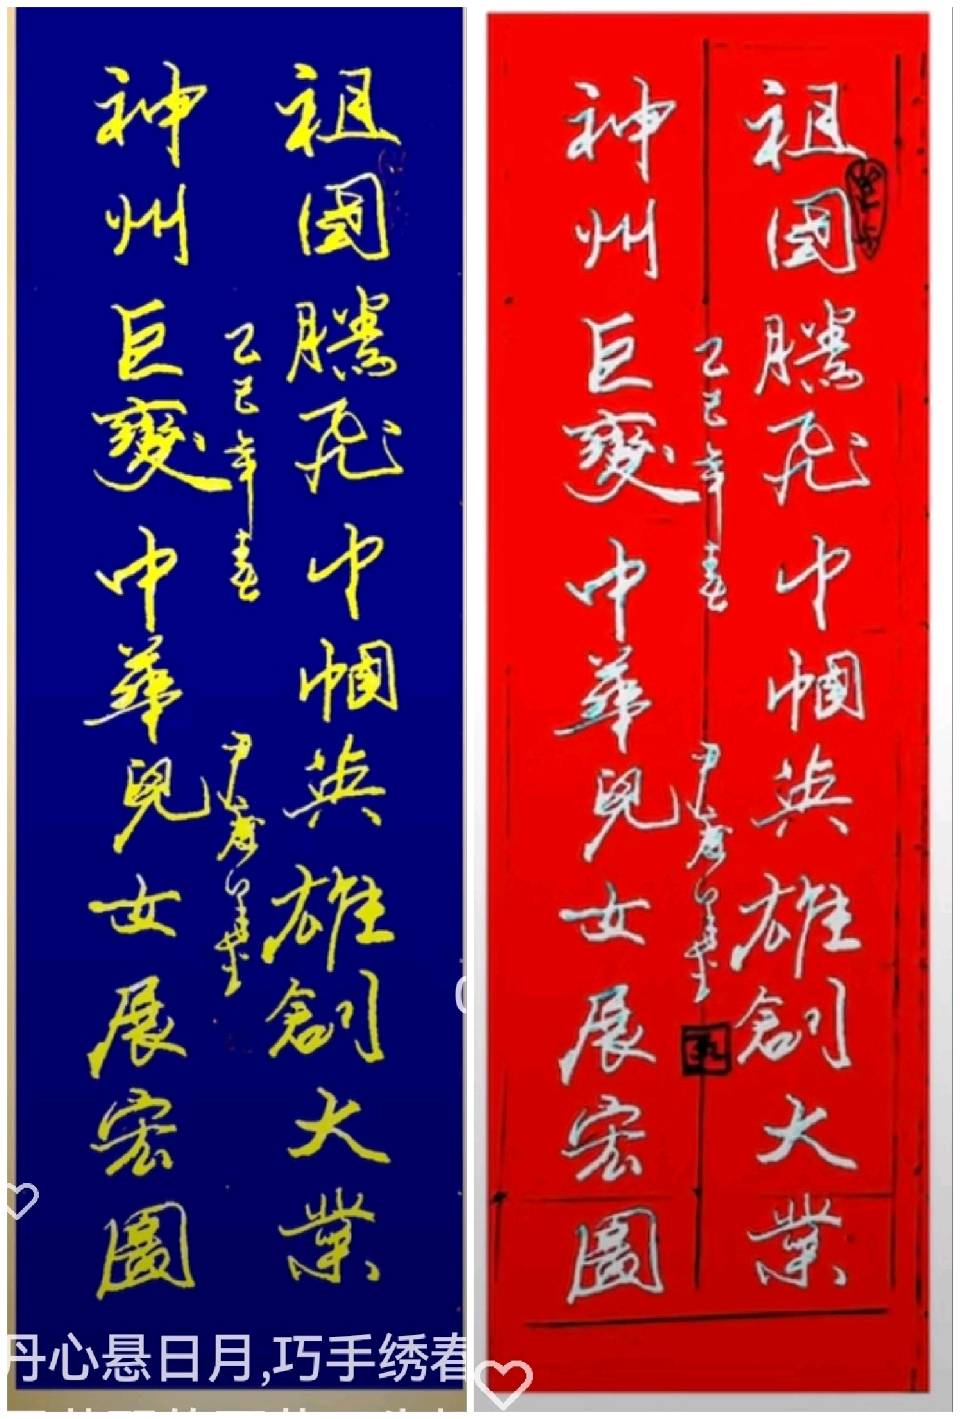 祖國騰飛巾幗英雄創大業
神州巨變中華兒女展宏圖
乙巳年春
尹
丹心悬日月,巧手绣春
祖國騰飛巾幗英雄創大業
神州巨變中華兒女展宏圖
乙巳年春
尹